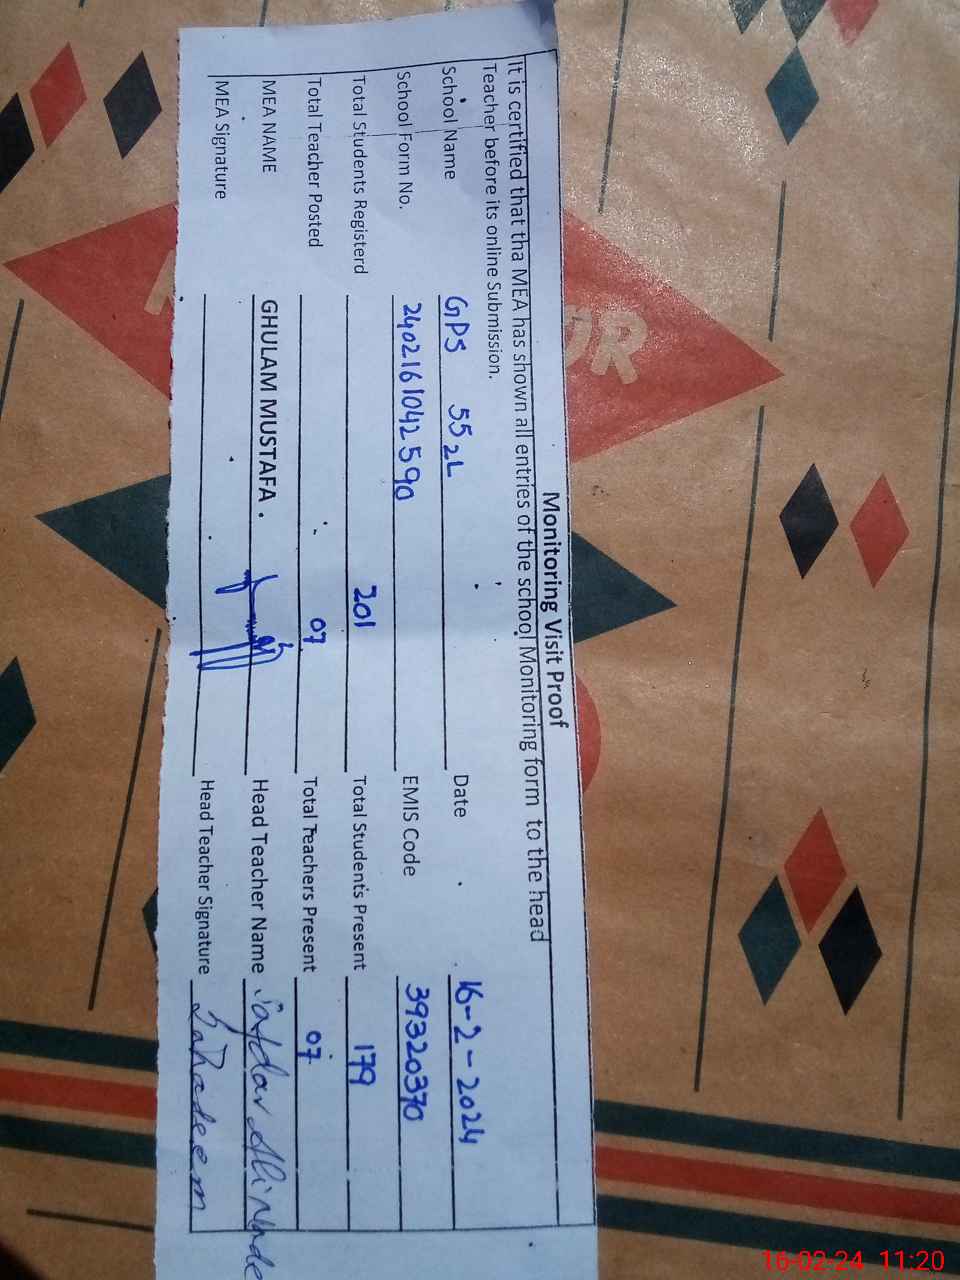 Monitoring Visit Proof
It is certified that tha MEA has shown all entries of the school Monitoring form to the head
Teacher before its online Submission.
School Name GPS 55 2L Date 16-2-2024
School Form No. 2402161042590 EMIS Code 39320370
Total Students Registerd 201 Total Students Present 179
Total Teacher Posted 07 Total Teachers Present 07
MEA NAME GHULAM MUSTAFA. Head Teacher Name Safdar Ali
MEA Signature Head Teacher Signature
16-02-24 11:20